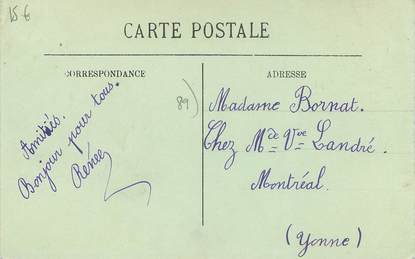 15-6
CARTE POSTALE
CORRESPONDANCE
Amitiés.
Bonjour pour tous.
Renée
89)
ADRESSE
Madame Bornat.
Chez Mde Vve Landré.
Montréal.
(Yonne)